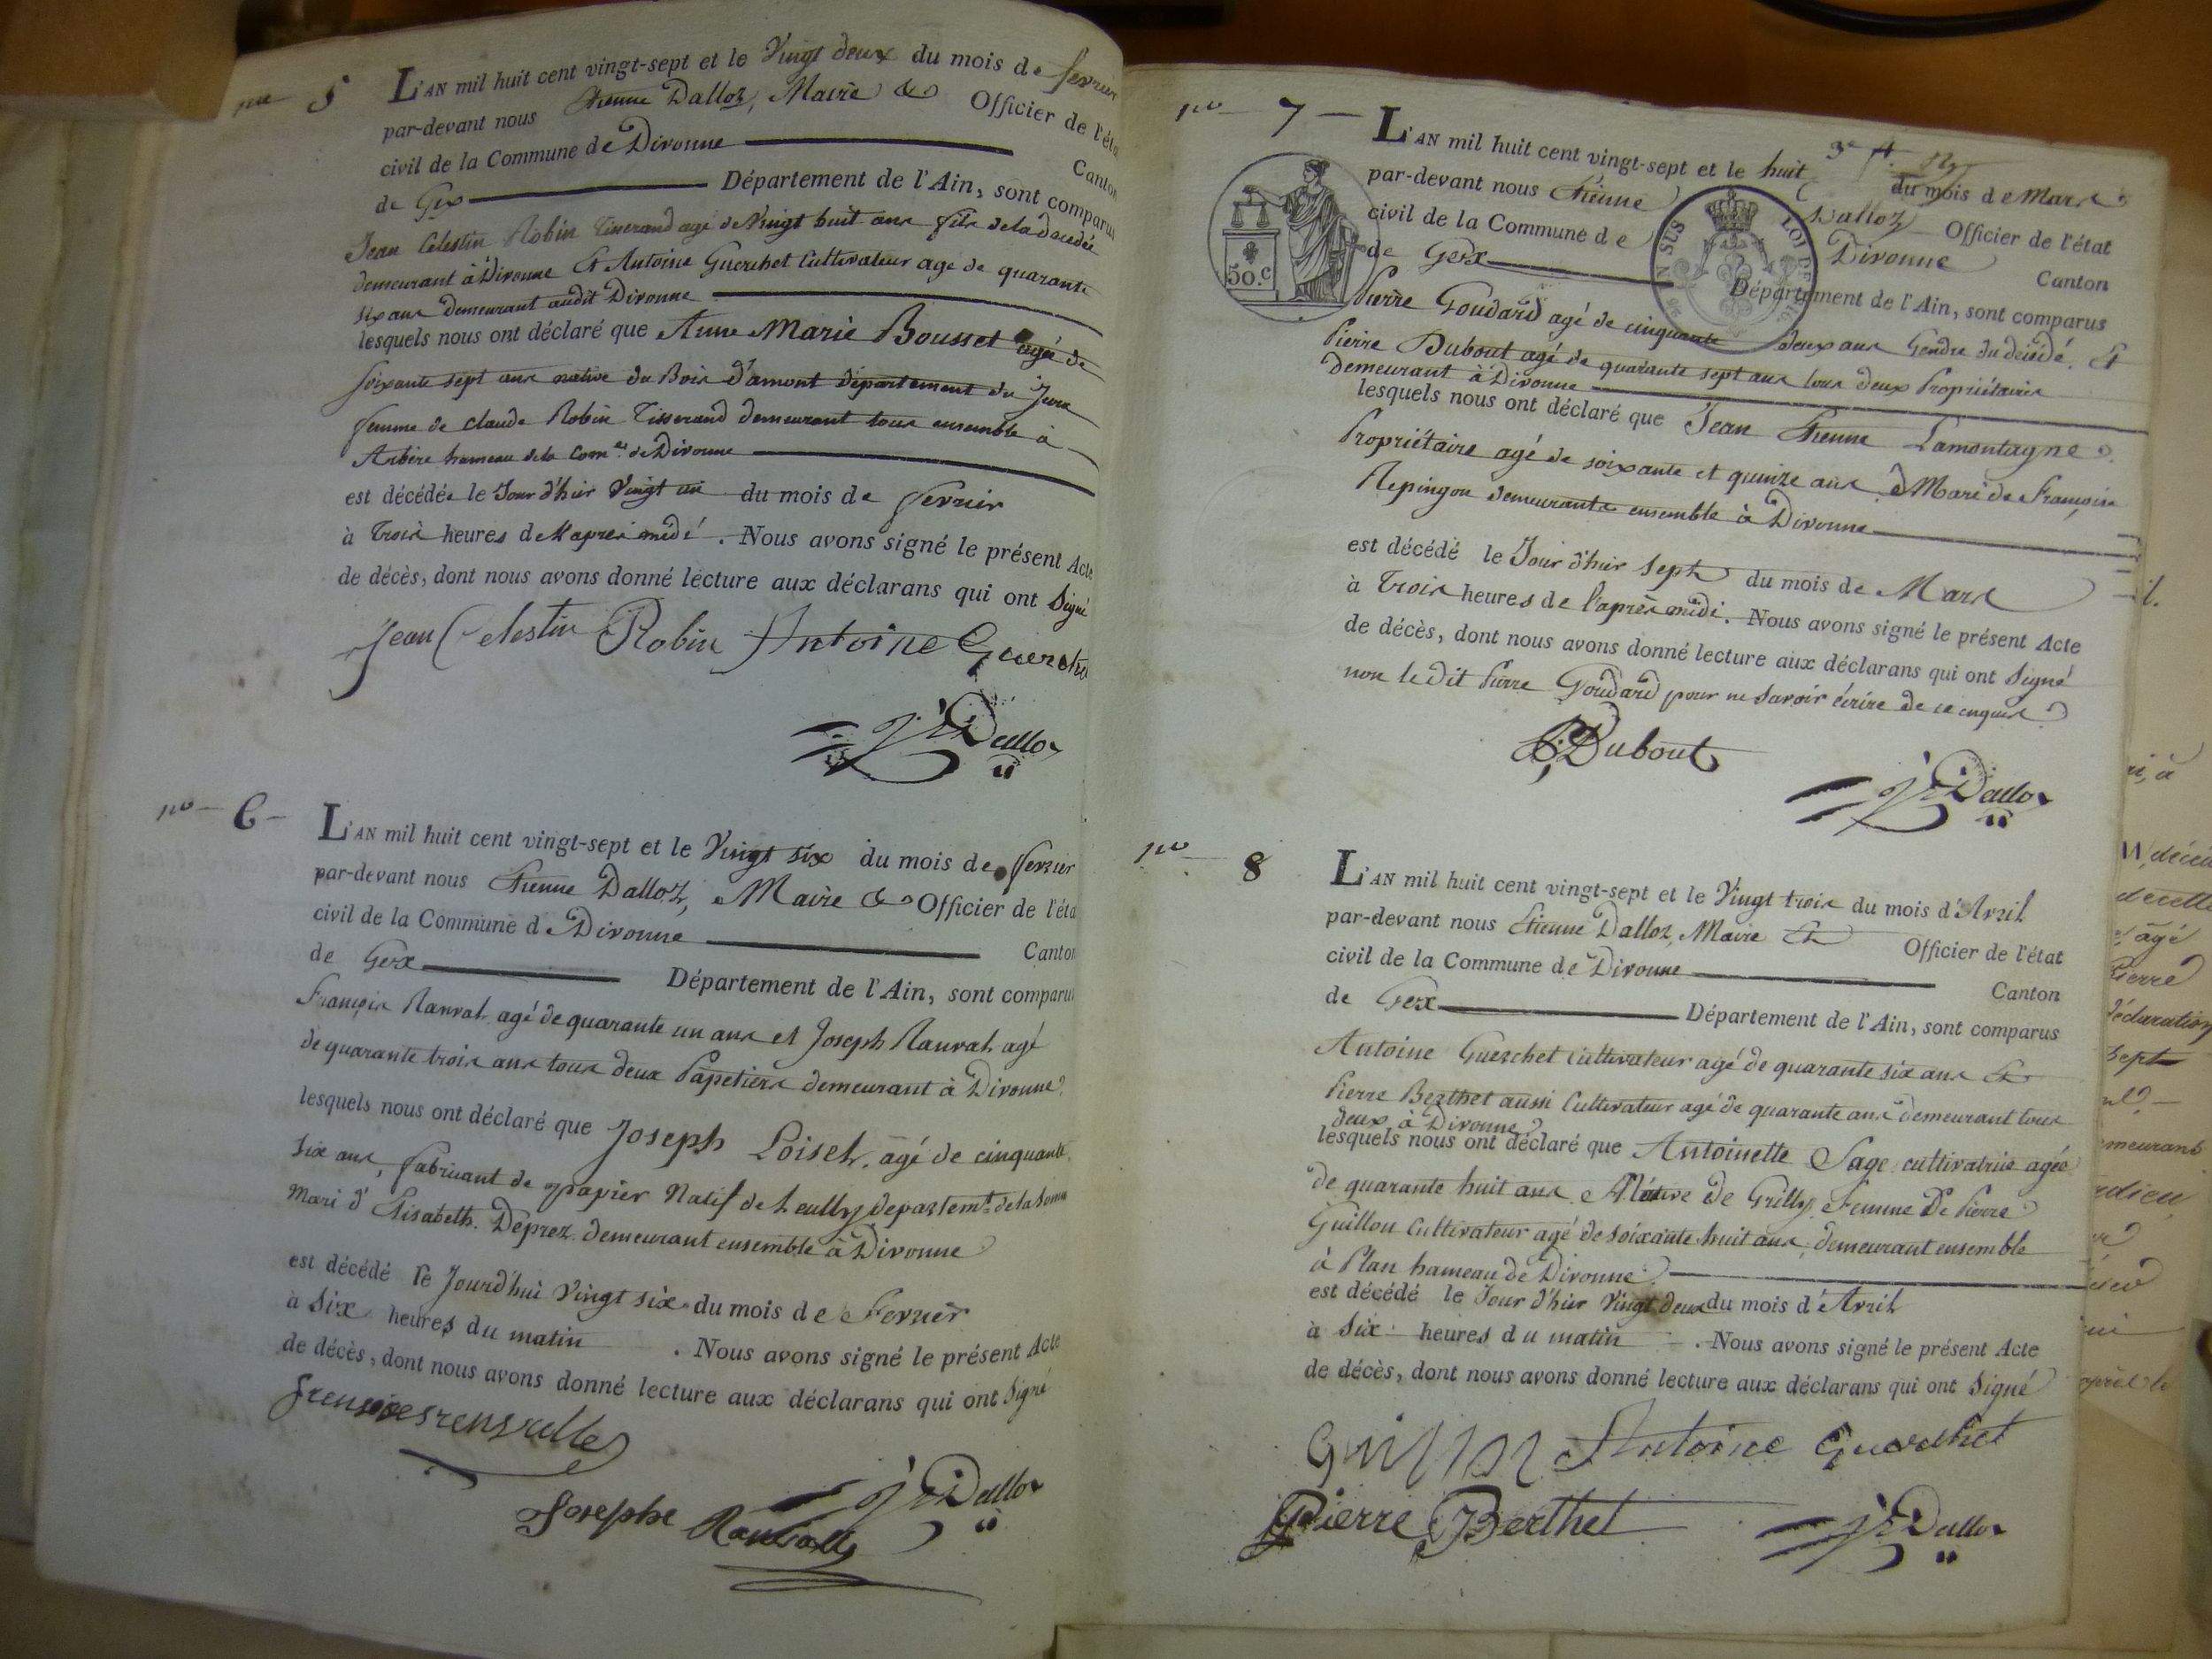 no 5
L'AN mil huit cent vingt-sept et le Vingt deux du mois de fevrier
par-devant nous Etienne Dalloz, Maire & Officier de l'éta
civil de la Commune de Divonne Canton
de Gex Département de l'Ain, sont comparus
Jean Celestin Robin Tisserand agé de Vingt huit ans fils de la decedée
demeurant à Divonne Et Antoine Guerchet Cultivateur agé de quarante
six ans demeurant audit Divonne
lesquels nous ont déclaré que Anne Marie Bousset agée de
soixante sept ans native du Bois d'amont département du Jura
femme de claude Robin Tisserand demeurant tous ensemble à
Arbère hameau de la Comne de Divonne
est décédée le Jour d'hier Vingt un du mois de fevrier
à Trois heures de l'après midi . Nous avons signé le présent Acte
de décès, dont nous avons donné lecture aux déclarans qui ont Signé
Jean Celestin Robin Antoine Guerche
Dalloz
no 6
L'AN mil huit cent vingt-sept et le Vingt six du mois de fevrier
par-devant nous Etienne Dalloz, Maire & Officier de l'éta
civil de la Commune de Divonne Canton
de Gex Département de l'Ain, sont comparu
François Ranvat agé de quarante un ans et Joseph Ranvat agé
de quarante trois ans tous deux Papetiers demeurant à Divonne
lesquels nous ont déclaré que Joseph Loiset, agé de cinquante
six ans, fabricant de papier Natif de departemt de la Somme
Mari d'Elisabeth Deprez demeurant ensemble à Divonne
est décédé le Jourd'hui Vingt six du mois de Fevrier
à Six heures du matin . Nous avons signé le présent Acte
de décès, dont nous avons donné lecture aux déclarans qui ont Signé
Josephe Dalloz
no 7
3e
L'AN mil huit cent vingt-sept et le huit du mois de Mars
par-devant nous Etienne Dalloz Officier de l'état
civil de la Commune de Divonne Canton
de Gex Département de l'Ain, sont comparus
50.c
Pierre Goudard agé de cinquante deux ans Gendre du décédé Et
Pierre Dubout agé de quarante sept ans tous deux Propriétaires
demeurant à Divonne
lesquels nous ont déclaré que Jean Etienne Lamontagne
Propriétaire agé de soixante et quinze ans Mari de Françoise
Repingon demeurants ensemble à Divonne
est décédé le Jour d'hier Sept du mois de Mars
à Trois heures de l'après midi. Nous avons signé le présent Acte
de décès, dont nous avons donné lecture aux déclarans qui ont Signé
non le dit Pierre Goudard pour ne Savoir écrire de ce enquis
Dubout
Dalloz
no 8
L'AN mil huit cent vingt-sept et le Vingt trois du mois d'Avril
par-devant nous Etienne Dalloz, Maire Et Officier de l'état
civil de la Commune de Divonne Canton
de Gex Département de l'Ain, sont comparus
Antoine Guerchet Cultivateur agé de quarante six ans Et
Pierre Berthet aussi Cultivateur agé de quarante ans demeurant tous
deux à Divonne
lesquels nous ont déclaré que Antoinette Sage cultivatrice agée
de quarante huit ans Native de Grilly Femme De Pierre
Guillon Cultivateur agé de soixante huit ans, demeurant ensemble
à Plan hameau de Divonne
est décédé le Jour d'hier Vingt deux du mois d'Avril
à Six heures du matin . Nous avons signé le présent Acte
de décès, dont nous avons donné lecture aux déclarans qui ont Signé
Antoine Guerchet
Pierre Berthet Dalloz